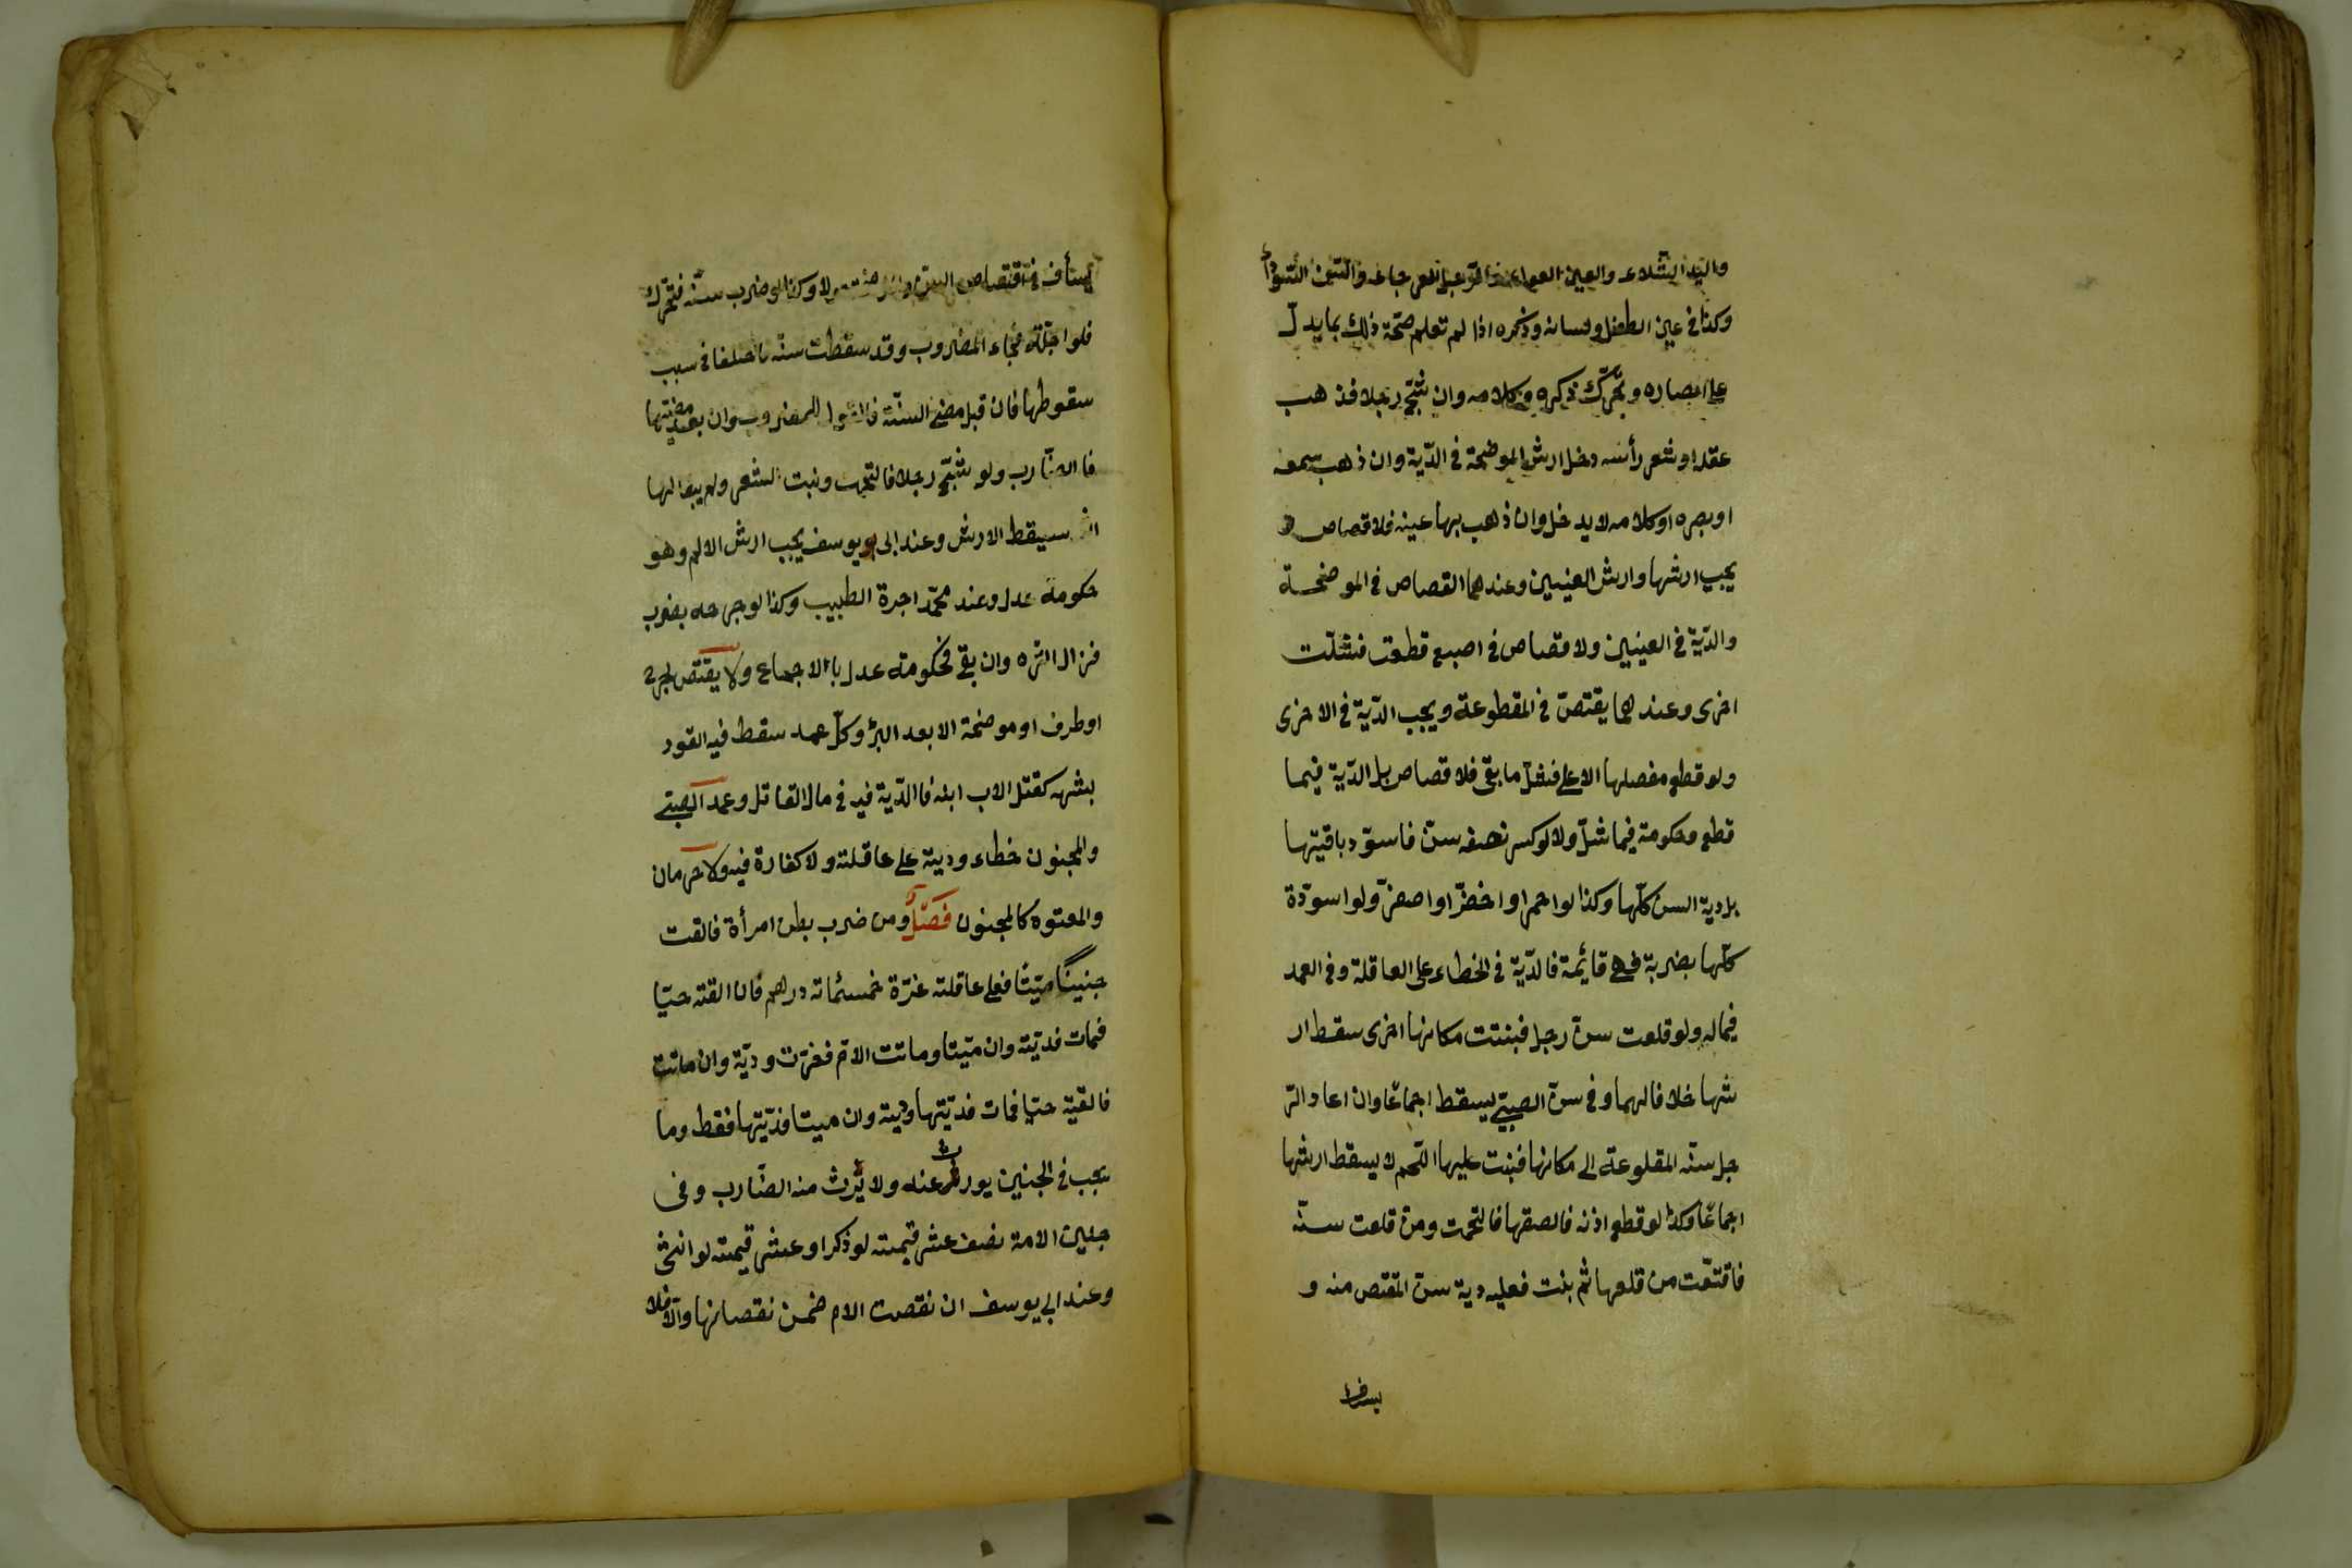 واليد الشلاء والعين العوراء والرجل العرجاء والسن السوداء
وكذا في عين الطفل ولسانه وذكره اذا لم تعلم صحّة ذلك بما يدلّ
على ابصاره وتحرّك ذكره وكلامه وان شجّ رجلا فذهب
عقله او شعر رأسه دخل ارش الموضحة في الدّية وان ذهب سمعه
او بصره او كلامه لا يدخل وان ذهب بها عينه فلا قصاص و
يجب ارشها وارش العينين وعندهما القصاص في الموضحة
والدّية في العينين ولا قصاص في اصبع قطعت فشلّت
اخرى وعندهما يقتصّ في المقطوعة ويجب الدّية في الاخرى
ولو قطع مفصلها الاعلى فشلّ ما بقى فلا قصاص بل الدّية فيما
قطع وحكومة فيما شلّ ولا لو كسر نصف سنّ فاسوّد باقيتها
بل دية السن كلّها وكذا لو احمر او اخضرّ او اصفرّ ولو اسوّدة
كلّها بضربة فهي قايمة فالدّية في الخطاء على العاقلة وفي العمد
في ماله ولو قلعت سنّ رجل فبنتت مكانها اخرى سقط ار
شها خلافا لهما وفي سنّ الصبيّ يسقط اجماعًا وان اعاد الر
جل سنّه المقلوعة الى مكانها فنبت عليها اللّحم لا يسقط ارشها
اجماعًا وكذا لو قطع اذنه فالصقها فالتحمت ومن قلعت سنّه
فاقتصّت من قلعها ثم بنت فعليه دية سنّ المقتص منه و
يستأ
يستأنف في اقتصاص السنّ والموضحة حولا وكذا لو ضرب سنّه فتحرّك
فلو اجّله فجاء المضروب وقد سقطت سنّه فاختلفا في سبب
سقوطها فان قبل مضي السنّة فالقول للمضروب وان بعد مضيّها
فالضّارب ولو شجّ رجلا فالتحمت ونبت الشعر ولم يبق لها
اثر سيقط الارش وعند ابى يوسف يجب ارش الالم وهو
حكومة عدل وعند محمّد اجرة الطبيب وكذا لو جرحه بضرب
فزال اثره وان بقى فحكومة عدل بالاجماع ولا يقتصّ لجرح
او طرف او موضحة الا بعد البرؤ وكلّ عمد سقط فيه القود
بشبهه كقتل الاب ابنه فالدّية فيه في مال القاتل وعمد الصبيّ
والمجنون خطاء وديته على عاقلته ولا كفارة فيه ولا حرمان
والمعتوه كالمجنون فصل ومن ضرب بطن امرأة فالقت
جنينًا ميّتًا فعلى عاقلته غرّة خمسمائة درهم فان القته حيّا
فمات فديّته وان ميّتا وماتت الامّ فغرّة وديّة وان ماتت
فالقيّه حيّا فمات فديّتها وديته وان ميتا فديّتها فقط وما
يجب في الجنين يورث عنه ولا يرث منه الضّارب وفى
جنين الامة نصف عشر قيمته لو ذكرا وعشر قيمته لو انثى
وعند ابي يوسف ان نقصت الام ضمن نقصانها والّا فلا